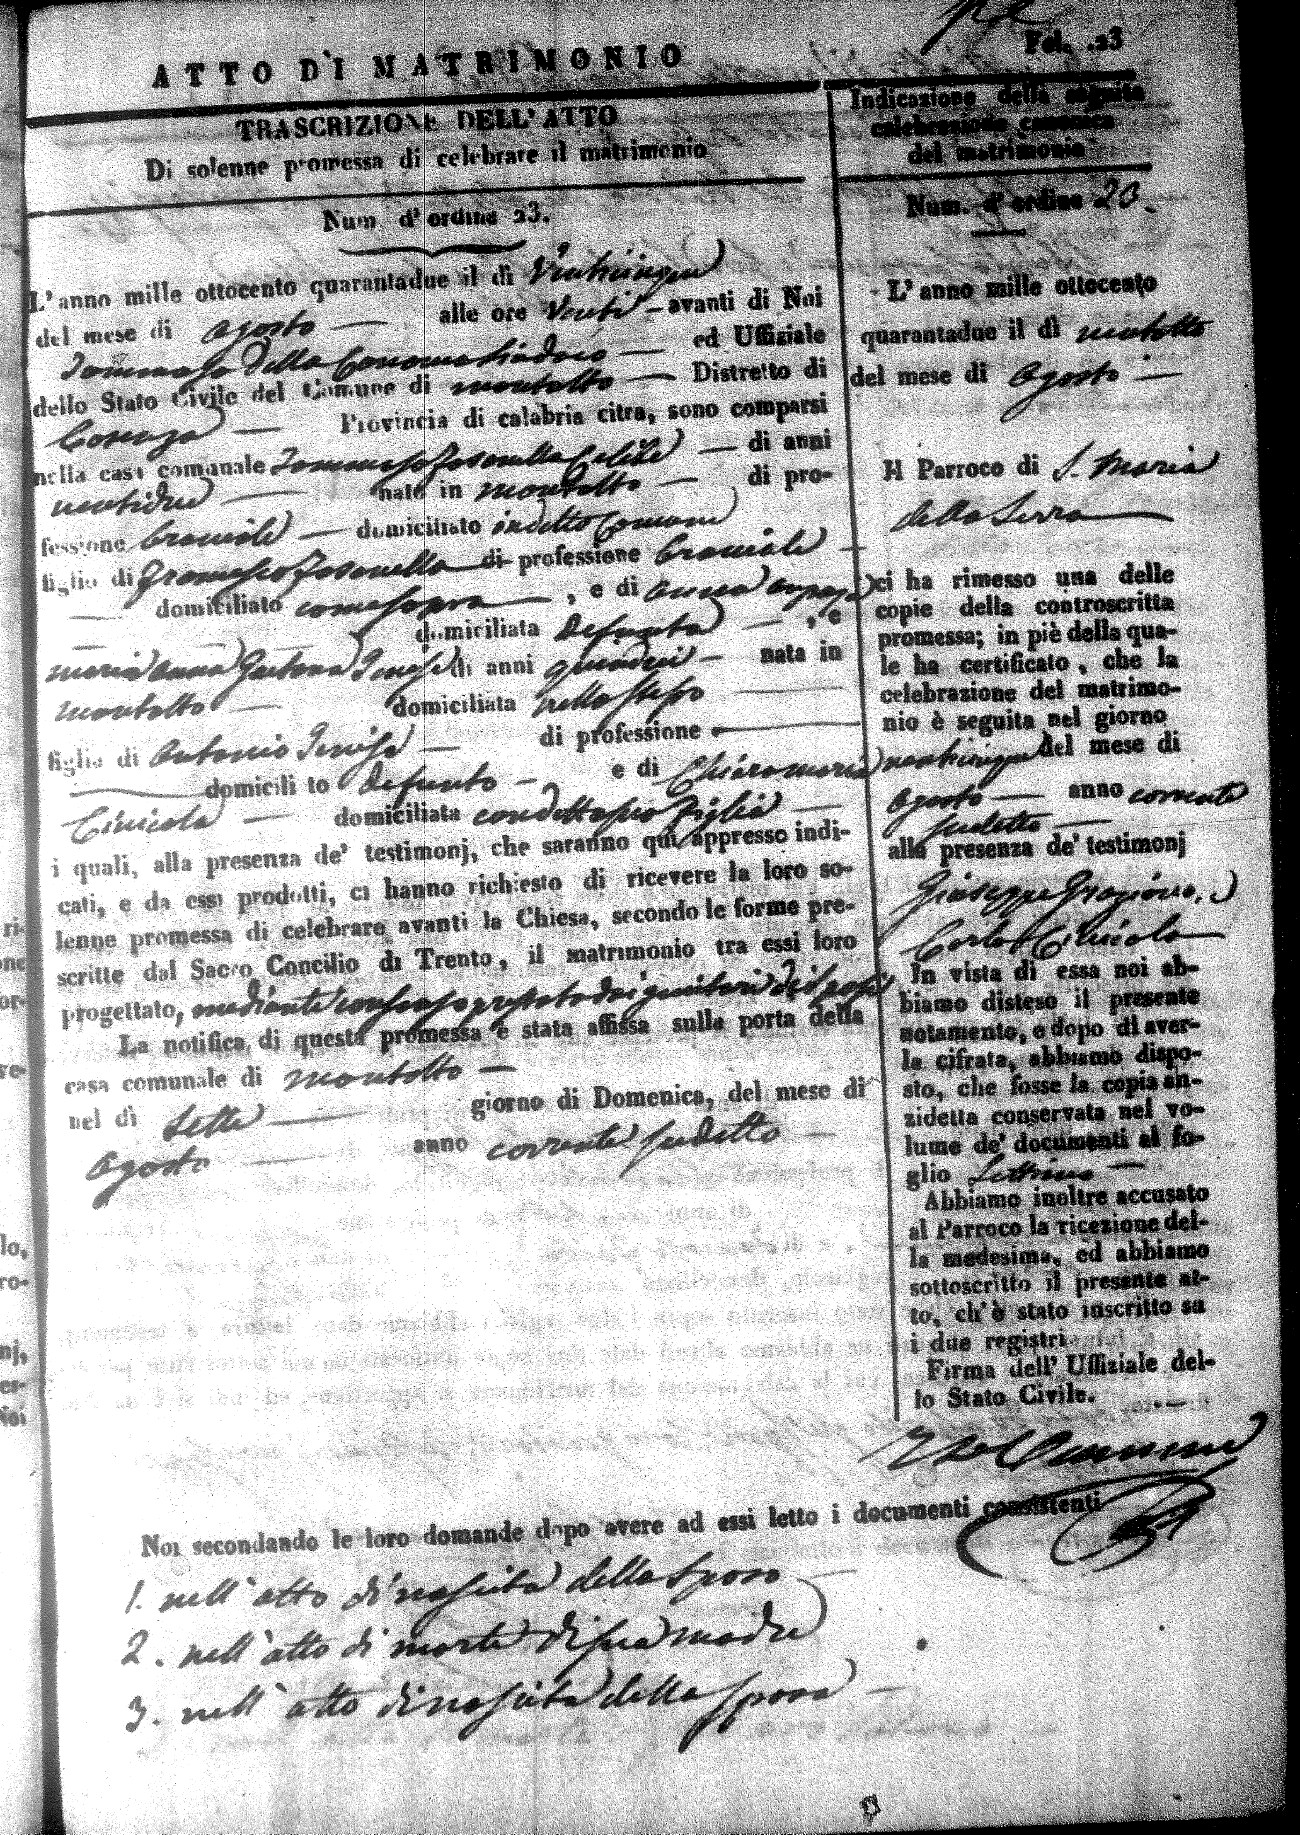 Fol. 23
ATTO DI MATRIMONIO
TRASCRIZIONE DELL'ATTO
Di solenne promessa di celebrare il matrimonio
Num d'ordine 23.
L'anno mille ottocento quarantadue il dì Venticinque
del mese di agosto alle ore Venti avanti di Noi
Tommaso Della ed Uffiziale
dello Stato Civile del Comune di montalto Distretto di
Cosenza Provincia di calabria citra, sono comparsi
nella casa comunale Tommaso di anni
ventidue nato in montalto di pro-
fessione domiciliato in detto Comune
figlio di Francesco di professione
domiciliato come sopra, e di anna
domiciliata Defunta, e
maria anna Gaetana di anni quindici nata in
montalto domiciliata nello stesso
figlia di Antonio di professione
domicili to defunto e di Chiaramaria
Cinicola domiciliata con detta sua Figlia
i quali, alla presenza de' testimonj, che saranno qui appresso indi-
cati, e da essi prodotti, ci hanno richiesto di ricevere la loro so-
lenne promessa di celebrare avanti la Chiesa, secondo le forme pre-
scritte dal Sacro Concilio di Trento, il matrimonio tra essi loro
progettato, mediante consenso prestato dai genitori de' sposi
La notifica di questa promessa è stata affissa sulla porta della
casa comunale di montalto
nel dì Sette giorno di Domenica, del mese di
Agosto anno corrente sudetto
Noi secondando le loro domande dopo avere ad essi letto i documenti consistenti
1. nell'atto di nascita dello sposo
2. nell'atto di morte di sua madre
3. nell'atto di nascita della sposa
Indicazione della seguita
celebrazione canonica
del matrimonio
Num. d'ordine 23.
L'anno mille ottocento
quarantadue il dì ventotto
del mese di Agosto
Il Parroco di S. Maria
della Serra
ci ha rimesso una delle
copie della controscritta
promessa; in piè della qua-
le ha certificato, che la
celebrazione del matrimo-
nio è seguita nel giorno
venticinque del mese di
Agosto anno corrente
sudetto
alla presenza de' testimonj
Giuseppe
Carlo Cinicola
In vista di essa noi ab-
biamo disteso il presente
notamento, e dopo di aver-
la cifrata, abbiamo dispo-
sto, che fosse la copia an-
zidetta conservata nel vo-
lume de' documenti al fo-
glio
Abbiamo inoltre accusato
al Parroco la ricezione del-
la medesima, ed abbiamo
sottoscritto il presente at-
to, ch'è stato inscritto su
i due registri
Firma dell' Uffiziale del-
lo Stato Civile.